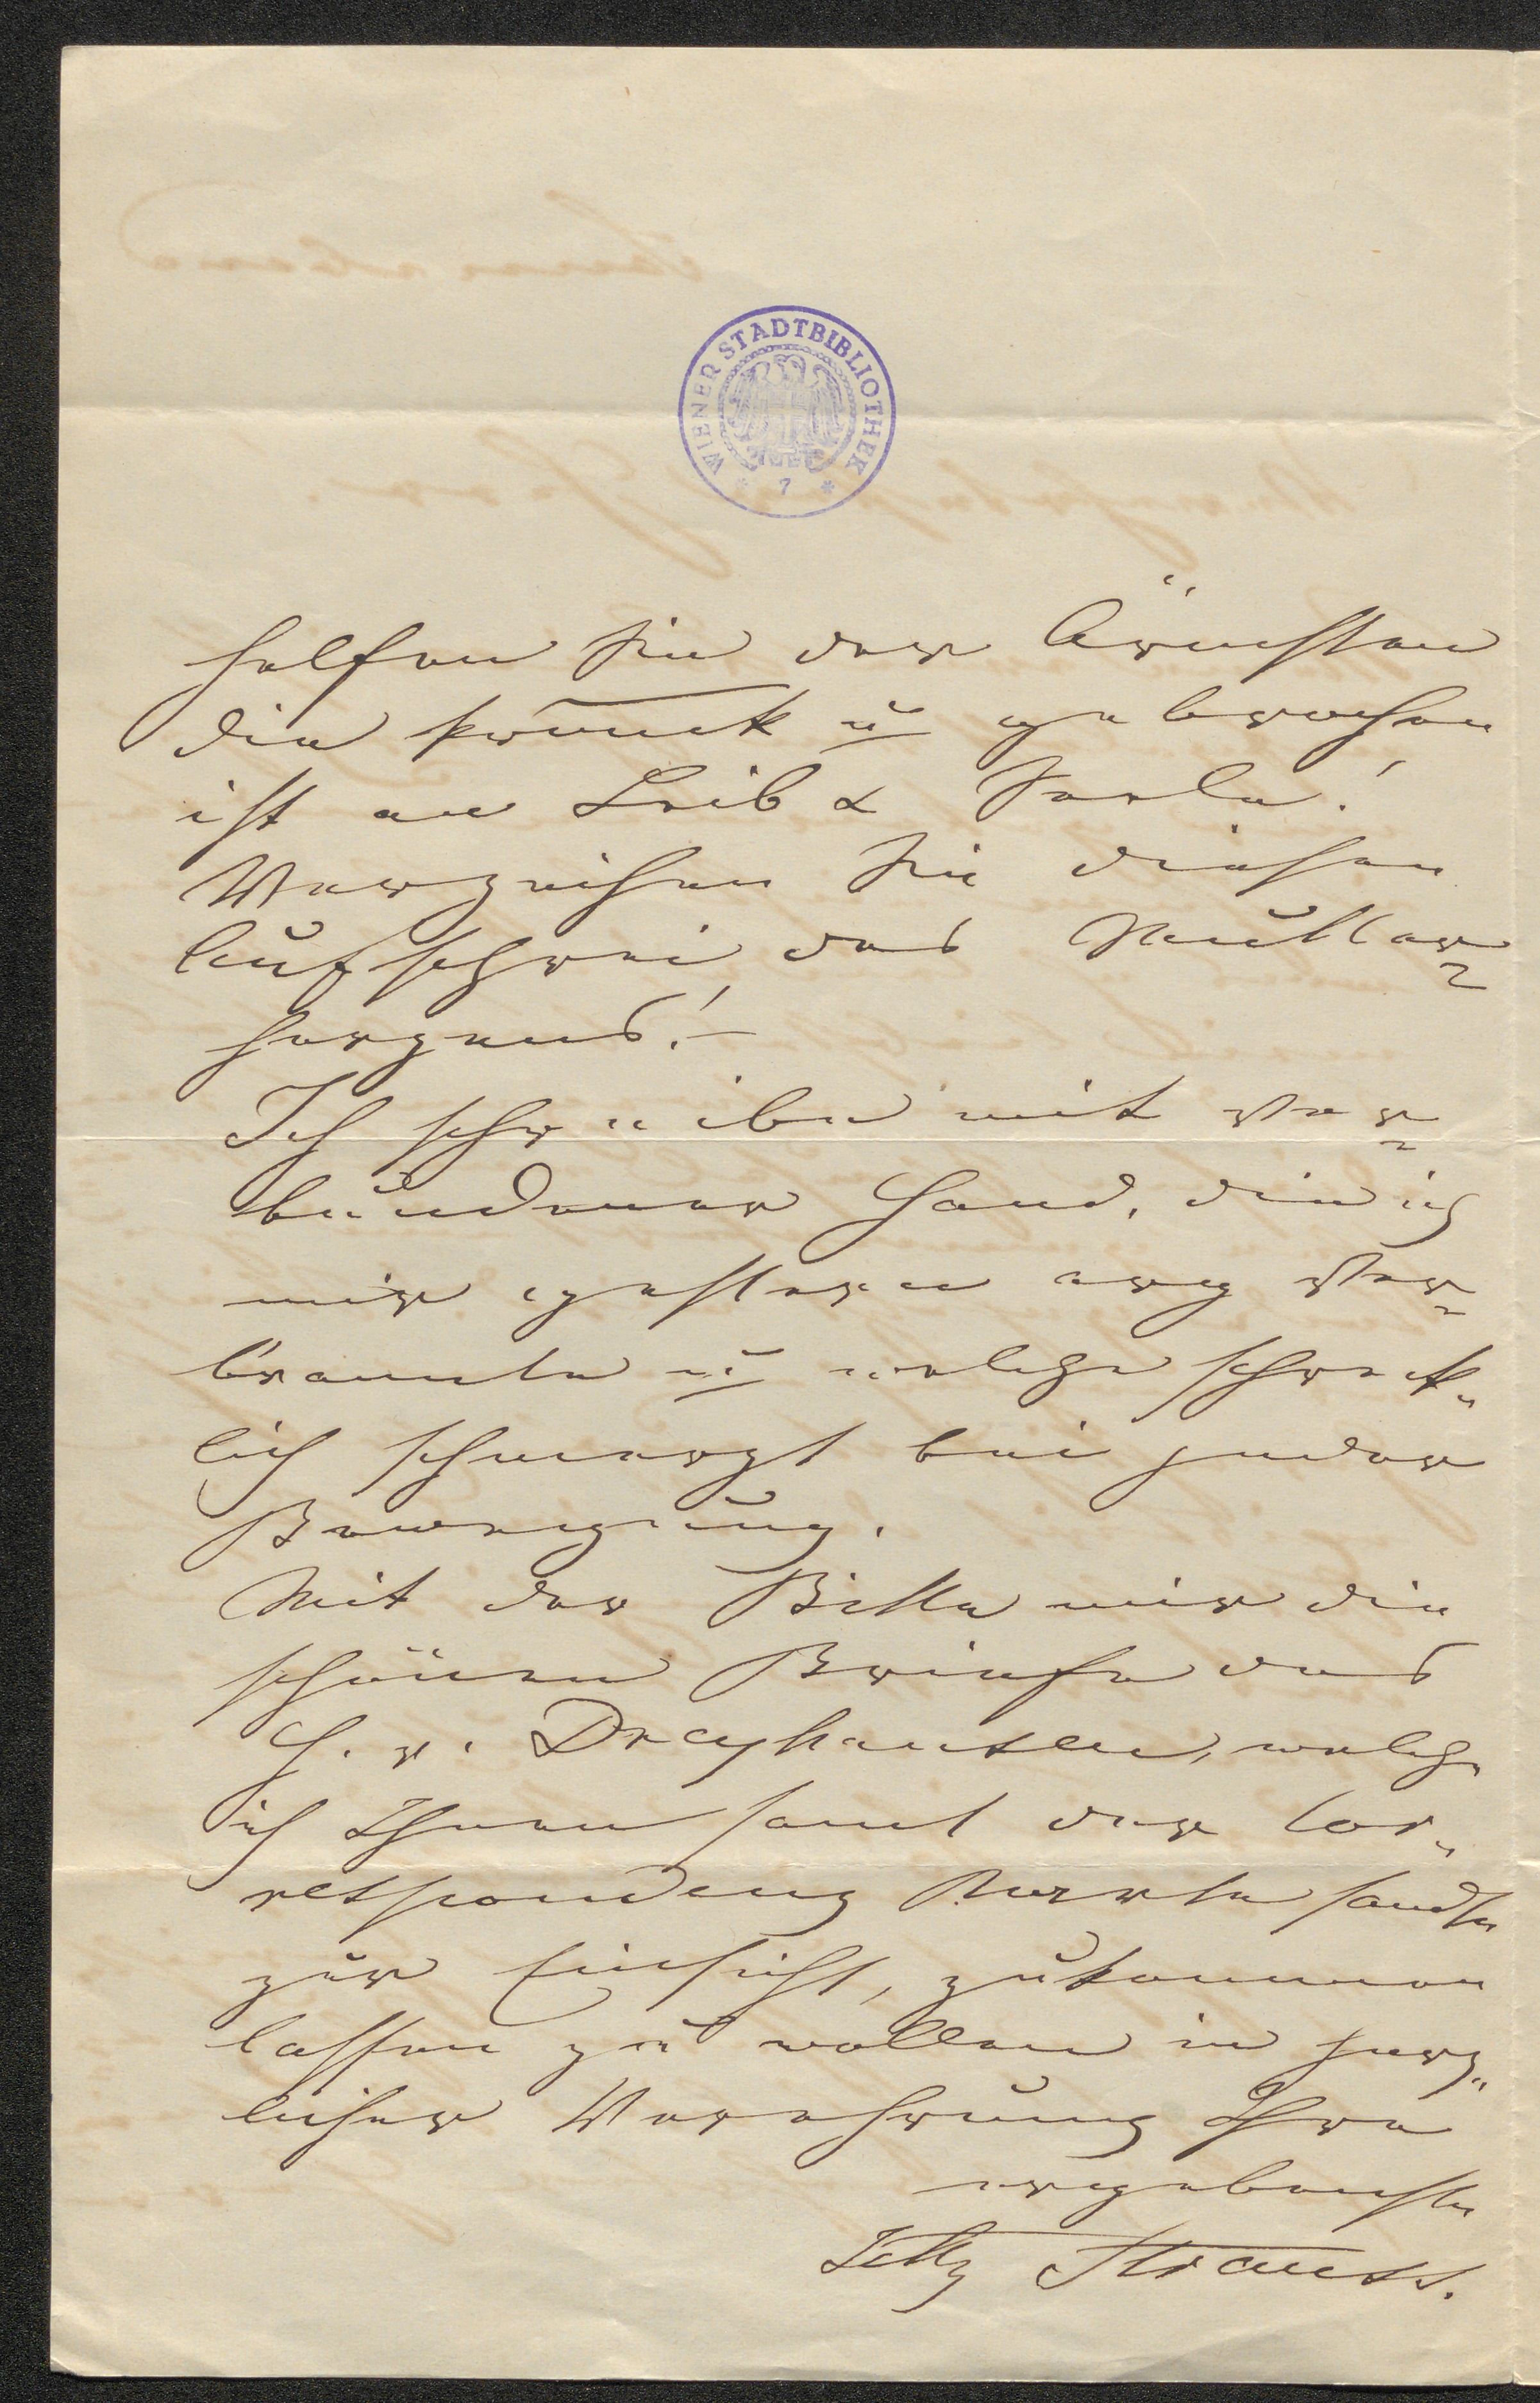 WIENER STADTBIBLIOTHEK
* 7 *
helfen Sie der Ärmsten
die krank u gebrochen
ist an Leib & Seele!
Verzeihen Sie diesen
Aufschrei des Mutter-
herzens! –
Ich schreibe mit ver-
bundener Hand, die ich
mir gestern arg ver-
brannte u welche schreck-
lich schmerzt bei jeder
Bewegung.
Mit der Bitte mir die
schönen Briefe des
H. v. Dreyhausen, welche
ich Ihnen samt der Cor-
respondenz sandte
zur Einsicht, zukommen
lassen zu wollen in herz-
licher Verehrung Ihre
ergebenste
Jetty Strauss.